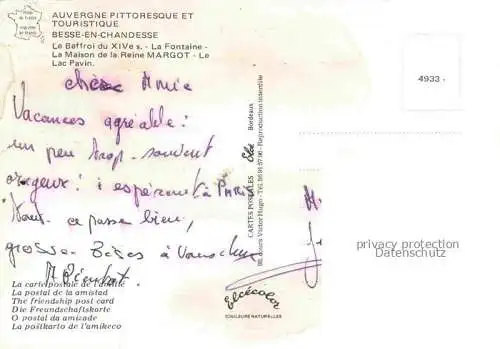 AUVERGNE PITTORESQUE ET
TOURISTIQUE
BESSE-EN-CHANDESSE
Le Beffroi du XIVe s. - La Fontaine -
La Maison de la Reine MARGOT - Le
Lac Pavin.
4933 -
chère Amie
Vacances agréable!
un peu trop souvent
orageux! à PARIS
tout ce passe bien,
grosses Bises à
La carte postale de l'amitié
La postal de la amistad
The friendship post card
Die Freundschaftskarte
O postal da amizade
La poŝtkarto de l'amikeco
CARTES POSTALES Elcé Bordeaux
cours Victor Hugo - Tél. - Reproduction interdite
elcécolor
COULEURS NATURELLES
privacy protection
Datenschutz